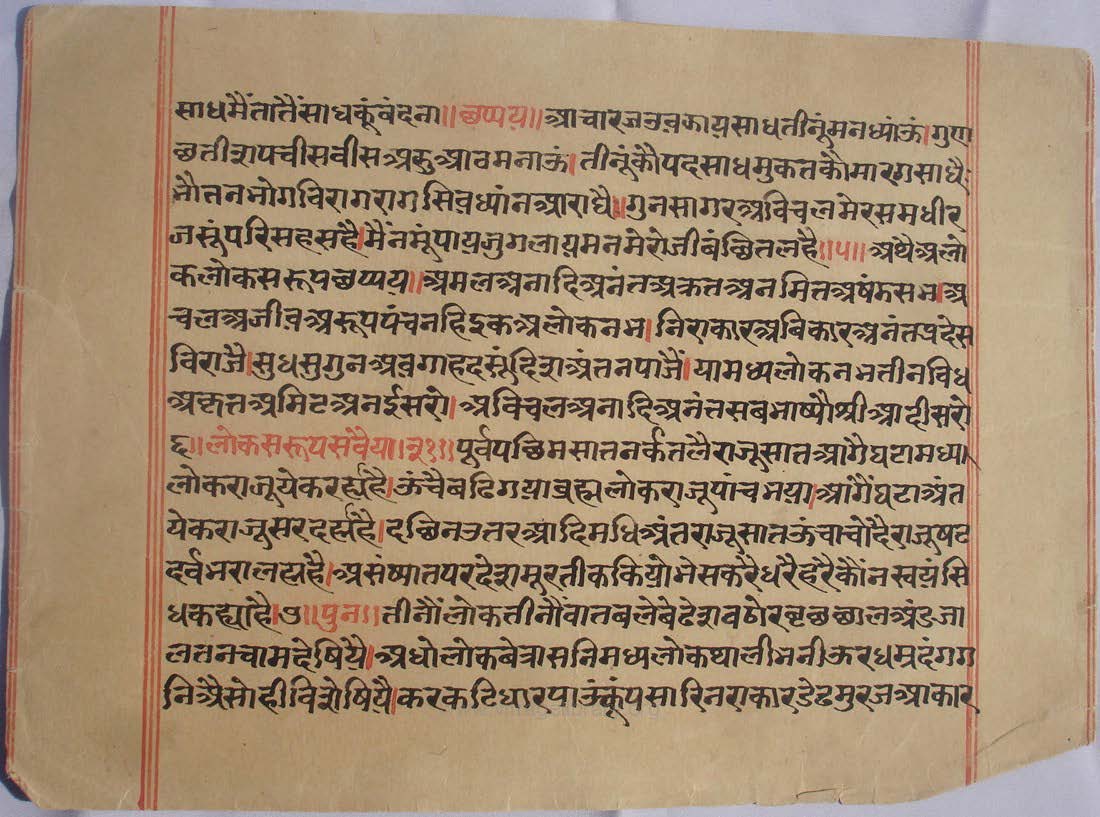 साधमैंतातैंसाधकूंवंदना॥छप्पय॥आचारजउवझायसाधतीनूंमनध्यांऊं।गुण
छतीशपचीसवीसअरुआठमनाऊं।तीनूंकौपदसाधमुकतकौमारगसाधै
भौतनभोगविरागरागसिवध्यांनआराधै॥गुनसागरअविचलमेरसमधीर
जसूंपरिसहसहै।मैंनमूंपायजुगलायमनमेरोजीवंछितलहै॥५॥अथैअलो
कलोकसरूपछप्पय॥अमलअनादिअनंतअकृतअनमितअषंडसभ।अ
चलअजीवअरूपपंचनहिइकअलोकनभ।निराकारअविकारअनंतप्रदेस
विराजै।सुधसुगुनअवगाहदसूंदिशअंतनपाजै।यामध्यलोकनभतीनविध
अकृतअमिटअनईसरो।अविचलअनादिअनंतसबभाष्यौश्रीआदीसरो
६॥लोकसरूपसवैया।३१॥पूर्वपछिमसातनर्कतलैराजूसातआगैघटामध्या
लोकराजूयेकरह्यहै।ऊंचैबढिगयाब्रह्मलोकराजूपांचभया।आगैंघटाअंत
येकराजूसरदह्यहै।दछिनउतरआदिमधिअंतराजूसातऊंचाचोदैराजूषट
दर्वभरालह्यहै।असंष्यातपरदेशमूरतीककियोभेसकरैधरैहरैकौंनस्वयंसि
धकह्याहै।७॥पुन॥तीनौंलोकतीनौंवातबलेबेढेशवठोरबृछछालअंडजा
लतनचामदेषियै।अधोलोकबेत्रासनिमध्यलोकथालीभनीऊरधम्रदंगग
निअैसोहीविशेषियै।करकटिधारपाउंकूंपसारिनराकारडेढमुरजआकार